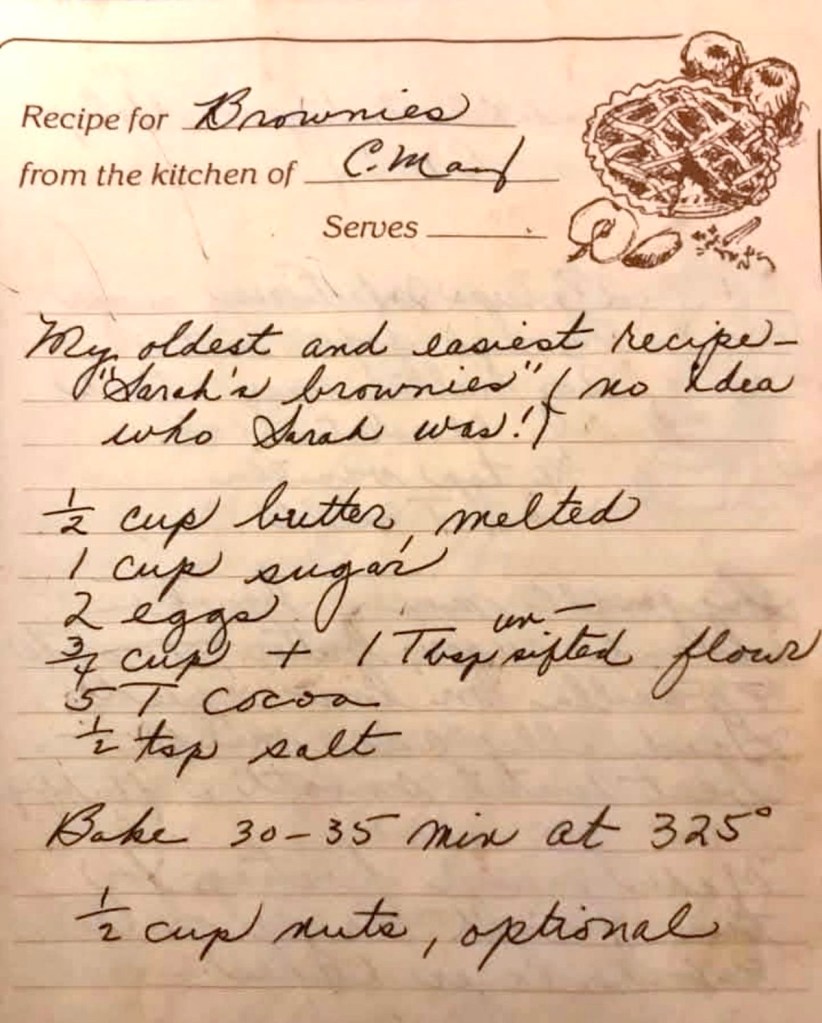 Recipe for Brownies
from the kitchen of C. Manf
Serves
My oldest and easiest recipe –
"Sarah's brownies" (no idea
who Sarah was!)
1/2 cup butter, melted
1 cup sugar
2 eggs
3/4 cup + 1 Tbsp un-sifted flour
5 T cocoa
1/2 tsp salt
Bake 30–35 min at 325°
1/2 cup nuts, optional